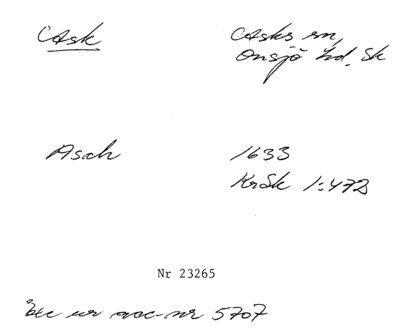 Ask
Asks sn,
Onsjö hd, Sk
Asch
1633
KrSk 1:472
Nr 23265
Exc ur acc-nr 5707